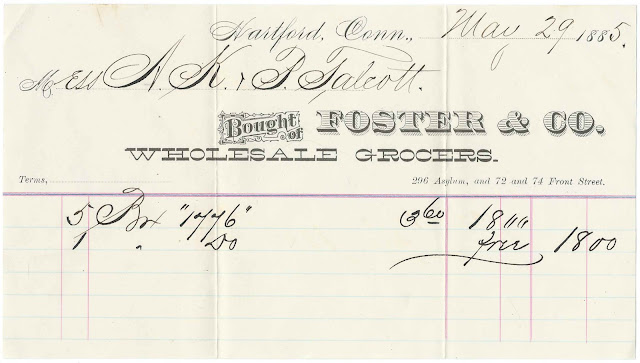 Hartford, Conn., May 29 1885.
Mess A. K. & P. Talcott.
Bought of FOSTER & CO.
WHOLESALE GROCERS.
Terms, 296 Asylum, and 72 and 74 Front Street.
5 Bx "1776" 3 60 18 ""
1 " Do free 18 00